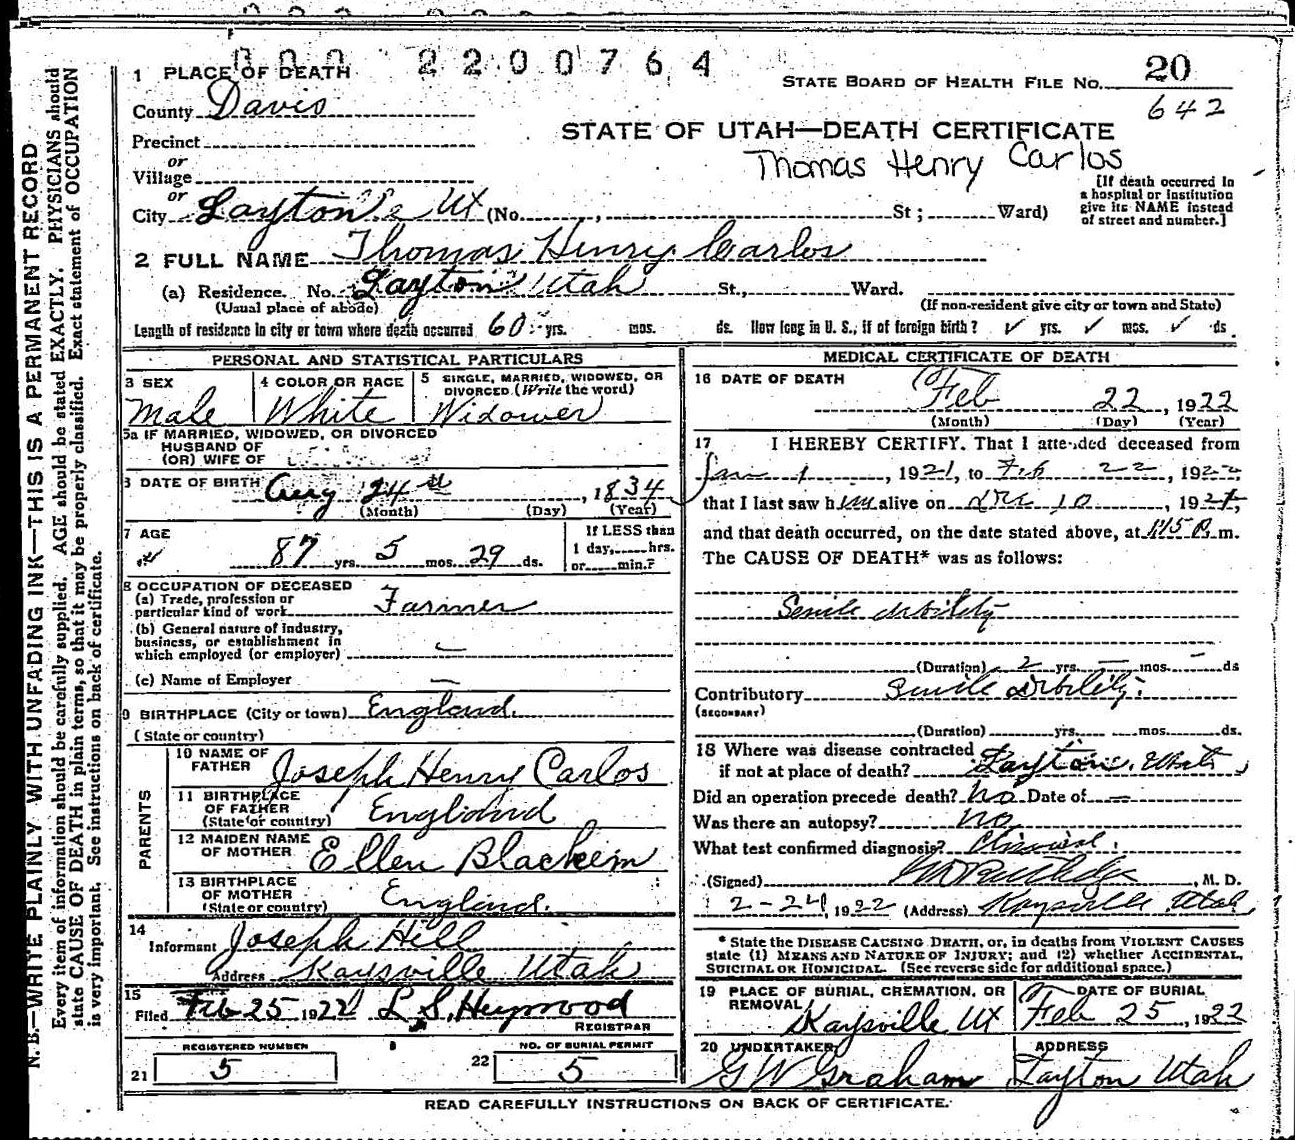 000 2200764
1 PLACE OF DEATH
STATE BOARD OF HEALTH FILE No. 20
County Davis
642
STATE OF UTAH—DEATH CERTIFICATE
Precinct
Thomas Henry Carlos
or
Village
or
City Layton Ut (No. , St ; Ward)
[If death occurred in
a hospital or institution
give its NAME instead
of street and number.]
2 FULL NAME Thomas Henry Carlos
(a) Residence. No. Layton Utah St., Ward.
(Usual place of abode) (If non-resident give city or town and State)
Length of residence in city or town where death occurred 60 yrs. mos. ds. How long in U. S., if of foreign birth? ✓ yrs. ✓ mos. ✓ ds.
PERSONAL AND STATISTICAL PARTICULARS
3 SEX
Male
4 COLOR OR RACE
White
5 SINGLE, MARRIED, WIDOWED, OR
DIVORCED (Write the word)
Widower
5a IF MARRIED, WIDOWED, OR DIVORCED
HUSBAND OF
(OR) WIFE OF
6 DATE OF BIRTH Aug 24th, 1834
(Month) (Day) (Year)
7 AGE
87 yrs. 5 mos. 29 ds.
If LESS than
1 day, hrs.
or min.?
8 OCCUPATION OF DECEASED
(a) Trade, profession or
particular kind of work Farmer
(b) General nature of industry,
business, or establishment in
which employed (or employer) —
(c) Name of Employer —
9 BIRTHPLACE (City or town) England.
(State or country)
PARENTS
10 NAME OF
FATHER Joseph Henry Carlos
11 BIRTHPLACE
OF FATHER
(State or country) England
12 MAIDEN NAME
OF MOTHER Ellen
13 BIRTHPLACE
OF MOTHER
(State or country) England.
14
Informant Joseph Hill
Address Kaysville Utah
15
Filed Feb 25 1922 L. S. Heywood
REGISTRAR
REGISTERED NUMBER
21 5
NO. OF BURIAL PERMIT
22 5
MEDICAL CERTIFICATE OF DEATH
16 DATE OF DEATH
Feb 22, 1922
(Month) (Day) (Year)
17 I HEREBY CERTIFY. That I attended deceased from
Jan 1, 1921, to Feb 22, 1922
that I last saw him alive on Dec 10, 1921,
and that death occurred, on the date stated above, at m.
The CAUSE OF DEATH* was as follows:
Senile debility
(Duration) 2 yrs. — mos. — ds
Contributory Senile Debility.
(SECONDARY)
(Duration) yrs. mos. ds.
18 Where was disease contracted
if not at place of death? Layton, Utah
Did an operation precede death? No Date of —
Was there an autopsy? no
What test confirmed diagnosis? Clinical
(Signed) , M. D.
2-24, 1922 (Address) Kaysville, Utah
* State the DISEASE CAUSING DEATH, or, in deaths from VIOLENT CAUSES
state (1) MEANS AND NATURE OF INJURY; and (2) whether ACCIDENTAL,
SUICIDAL OR HOMICIDAL. (See reverse side for additional space.)
19 PLACE OF BURIAL, CREMATION, OR
REMOVAL
Kaysville Ut
DATE OF BURIAL
Feb 25, 1922
20 UNDERTAKER
G W Graham
ADDRESS
Layton Utah
READ CAREFULLY INSTRUCTIONS ON BACK OF CERTIFICATE.
N. B.—WRITE PLAINLY WITH UNFADING INK—THIS IS A PERMANENT RECORD
Every item of information should be carefully supplied. AGE should be stated EXACTLY. PHYSICIANS should
state CAUSE OF DEATH in plain terms, so that it may be properly classified. Exact statement of OCCUPATION
is very important. See instructions on back of certificate.